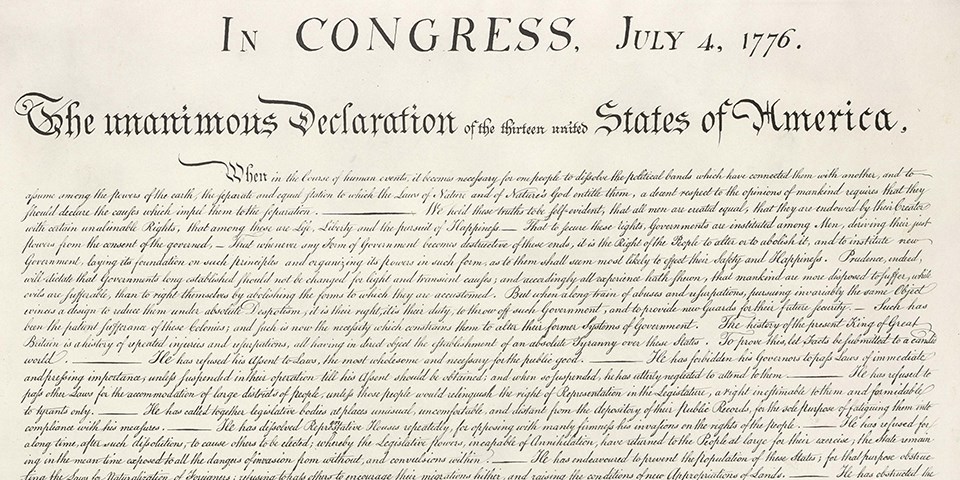 IN CONGRESS, JULY 4, 1776.
The unanimous Declaration of the thirteen united States of America,
When in the Course of human events, it becomes necessary for one people to dissolve the political bands which have connected them with another, and to
assume among the powers of the earth, the separate and equal station to which the Laws of Nature and of Nature's God entitle them, a decent respect to the opinions of mankind requires that they
should declare the causes which impel them to the separation. — We hold these truths to be self-evident, that all men are created equal, that they are endowed by their Creator
with certain unalienable Rights, that among these are Life, Liberty and the pursuit of Happiness.— That to secure these rights, Governments are instituted among Men, deriving their just
powers from the consent of the governed, — That whenever any Form of Government becomes destructive of these ends, it is the Right of the People to alter or to abolish it, and to institute new
Government, laying its foundation on such principles and organizing its powers in such form, as to them shall seem most likely to effect their Safety and Happiness. Prudence, indeed,
will dictate that Governments long established should not be changed for light and transient causes; and accordingly all experience hath shewn, that mankind are more disposed to suffer, while
evils are sufferable, than to right themselves by abolishing the forms to which they are accustomed. But when a long train of abuses and usurpations, pursuing invariably the same Object
evinces a design to reduce them under absolute Despotism, it is their right, it is their duty, to throw off such Government, and to provide new Guards for their future security. — Such has
been the patient sufferance of these Colonies; and such is now the necessity which constrains them to alter their former Systems of Government. The history of the present King of Great
Britain is a history of repeated injuries and usurpations, all having in direct object the establishment of an absolute Tyranny over these States. To prove this, let Facts be submitted to a candid
world. — He has refused his Assent to Laws, the most wholesome and necessary for the public good. — He has forbidden his Governors to pass Laws of immediate
and pressing importance, unless suspended in their operation till his Assent should be obtained; and when so suspended, he has utterly neglected to attend to them. — He has refused to
pass other Laws for the accommodation of large districts of people, unless those people would relinquish the right of Representation in the Legislature, a right inestimable to them and formidable
to tyrants only. — He has called together legislative bodies at places unusual, uncomfortable, and distant from the depository of their Public Records, for the sole purpose of fatiguing them into
compliance with his measures. — He has dissolved Representative Houses repeatedly, for opposing with manly firmness his invasions on the rights of the people. — He has refused for
a long time, after such dissolutions, to cause others to be elected; whereby the Legislative powers, incapable of Annihilation, have returned to the People at large for their exercise; the State remain-
ing in the mean time exposed to all the dangers of invasion from without, and convulsions within. — He has endeavoured to prevent the population of these States; for that purpose obstruc-
ting the Laws for Naturalization of Foreigners; refusing to pass others to encourage their migrations hither, and raising the conditions of new Appropriations of Lands. — He has obstructed the